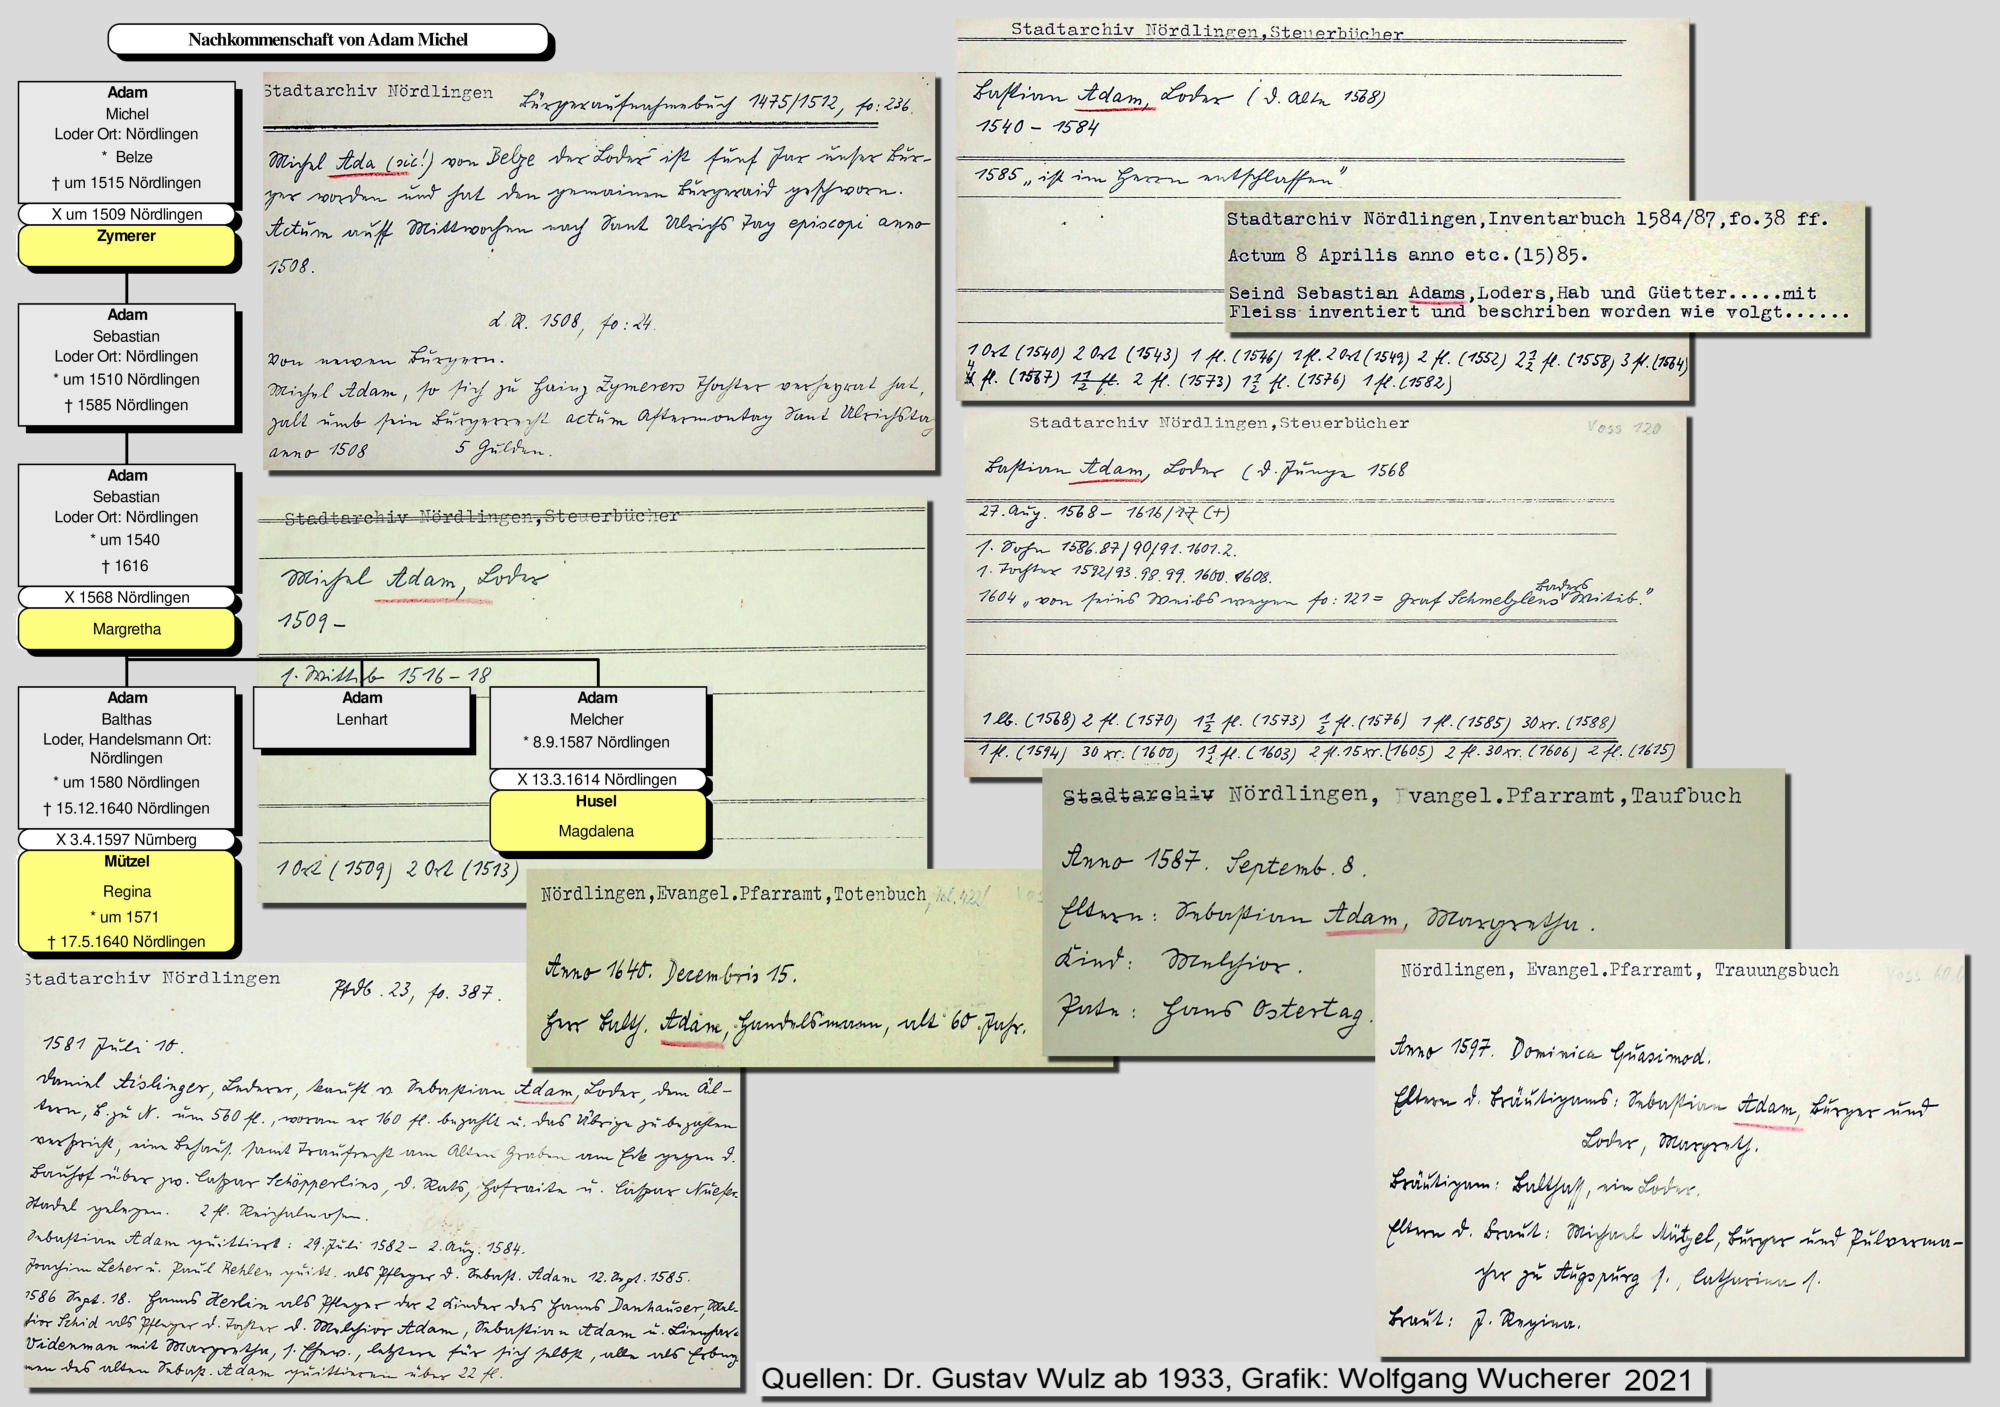 Nachkommenschaft von Adam Michel
Adam
Michel
Loder Ort: Nördlingen
* Belze
† um 1515 Nördlingen
X um 1509 Nördlingen
Zymerer
Adam
Sebastian
Loder Ort: Nördlingen
* um 1510 Nördlingen
† 1585 Nördlingen
Adam
Sebastian
Loder Ort: Nördlingen
* um 1540
† 1616
X 1568 Nördlingen
Margretha
Adam
Balthas
Loder, Handelsmann Ort:
Nördlingen
* um 1580 Nördlingen
† 15.12.1640 Nördlingen
X 3.4.1597 Nürnberg
Mützel
Regina
* um 1571
† 17.5.1640 Nördlingen
Adam
Lenhart
Adam
Melcher
* 8.9.1587 Nördlingen
X 13.3.1614 Nördlingen
Husel
Magdalena
Stadtarchiv Nördlingen
Bürgeraufnahmebuch 1475/1512, fo: 236.
Michel Ada (sic!) von Belze der Loder ist fünf Jar unser Bür-
ger worden und hat den gemainen Bürgeraid geschworn.
Actum aufft Mittwochen nach Sant Ulrichs Tag episcopi anno
1508.
d. R. 1508, fo: 24.
Von newen Bürgern.
Michel Adam, so sich zu Hainz Zymerers Thochter verheyrat hat,
zalt umb sein Bürgerrecht actum Aftermontag Sant Ulrichstag
anno 1508 5 Gulden.
Stadtarchiv Nördlingen,Steuerbücher
Michel Adam, Loder
1509 –
1. Wittib 1516 – 18
1 Ort (1509) 2 Ort (1513)
Stadtarchiv Nördlingen,Steuerbücher
Bastian Adam, Loder (d. Alte 1568)
1540 – 1584
1585 „ist im Herrn entschlaffen"
1 Ort (1540) 2 Ort (1543) 1 fl. (1546) 1 fl. 2 Ort (1549) 2 fl. (1552) 2½ fl. (1558) 3 fl. (1564)
4 fl. (1567) 1½ fl. 2 fl. (1573) 1½ fl. (1576) 1 fl. (1582)
Stadtarchiv Nördlingen,Inventarbuch 1584/87,fo.38 ff.
Actum 8 Aprilis anno etc.(15)85.
Seind Sebastian Adams,Loders,Hab und Güetter.....mit
Fleiss inventiert und beschriben worden wie volgt......
Stadtarchiv Nördlingen,Steuerbücher
Voss 120
Bastian Adam, Loder (d. Junge 1568
27. Aug. 1568 – 1616/17 (+)
1. Sohn 1586.87/90/91. 1601.2.
1. Tochter 1592/93. 98. 99. 1600. 1608.
1604 „von seins Weibs wegen fo: 121 = Graf Schmelzlens Baders Witib."
1 lb. (1568) 2 fl. (1570) 1½ fl. (1573) ½ fl. (1576) 1 fl. (1585) 30 xr. (1588)
1 fl. (1594) 30 xr. (1600) 1½ fl. (1603) 2 fl. 15 xr. (1605) 2 fl. 30 xr. (1606) 2 fl. (1615)
Stadtarchiv Nördlingen, Evangel.Pfarramt,Taufbuch
Anno 1587. Septemb. 8.
Eltern: Sebastian Adam, Margretha.
Kind: Melchior.
Pate: Hans Ostertag.
Nördlingen,Evangel.Pfarramt,Totenbuch, fol. 422
Anno 1640. Decembris 15.
Herr Balth. Adam, Handelsmann, alt 60 Jahr.
Nördlingen, Evangel.Pfarramt, Trauungsbuch
Anno 1597. Dominica Quasimod.
Eltern d. Bräutigams: Sebastian Adam, Bürger und
Loder, Margreth.
Bräutigam: Balthaß, ein Loder.
Eltern d. Braut: Michael Mützel, Bürger und Pulverma-
cher zu Augspurg †, Catharina †.
Braut: J. Regina.
Stadtarchiv Nördlingen
Pfdb. 23, fo. 387.
1581 Juli 10.
Daniel Aislinger, Lederer, kauft v Sebastian Adam, Loder, dem Äl-
tern, B. zu N. um 560 fl., woran er 160 fl. bezahlt u. das Übrige zu bezahlen
verspricht, eine Behaus. samt Traufrecht am Alten Graben am Eck gegen d.
Bauhof über zw. Caspar Schöpperlins, d. Rats, Hofraite u. Caspar
Stadel gelegen. 2 fl. Reichalmosen.
Sebastian Adam quittiert: 29. Juli 1582 – 2. Aug. 1584.
Joachim Leher u. Paul Rehlen quitt. als Pfleger d. Sebast. Adam 12. Sept. 1585.
1586 Sept. 18. Hanns Herlin als Pfleger der 2 Kinder des Hanns Danhauser, Mel-
chior Schid als Pfleger d. Tochter d. Melchior Adam, Sebastian Adam u. Lienhart
Videnman mit Margretha, s. Ehew., letztere für sich selbst, alle als Erben
des alten Sebast. Adam quittieren über 22 fl.
Quellen: Dr. Gustav Wulz ab 1933, Grafik: Wolfgang Wucherer 2021